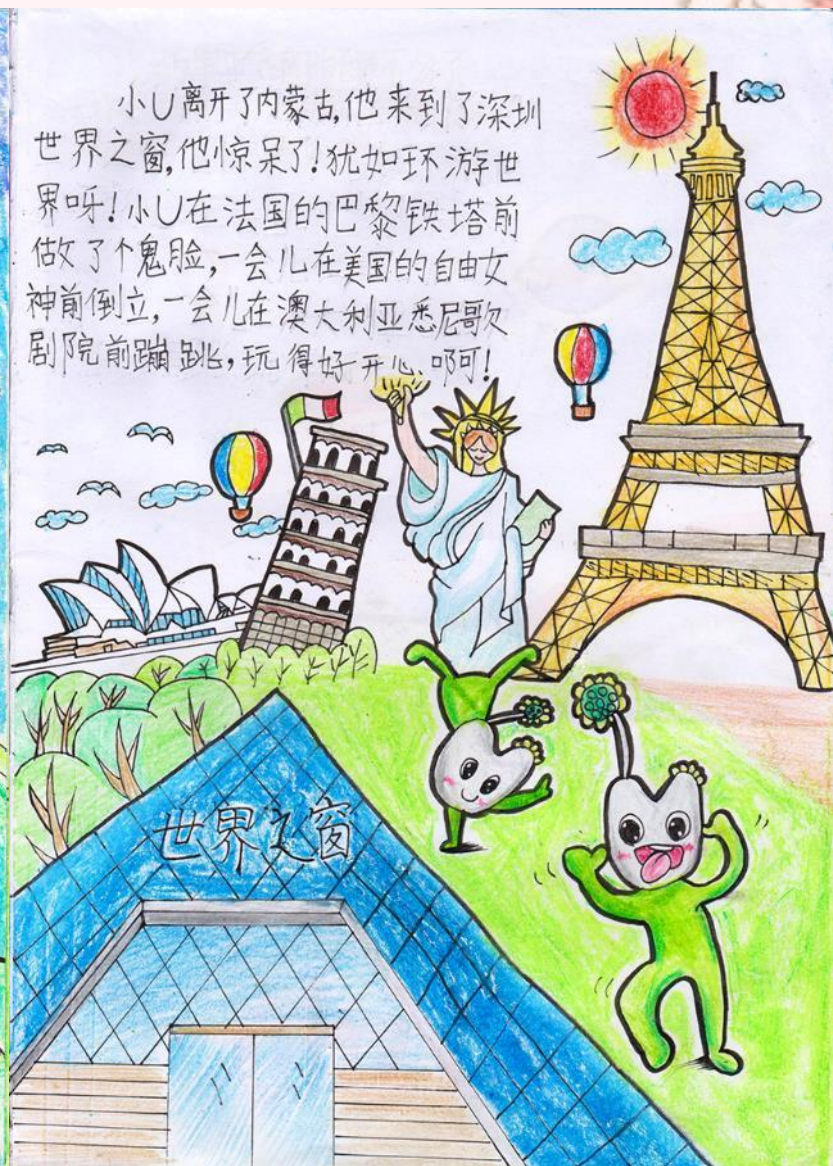 小U离开了内蒙古,他来到了深圳
世界之窗,他惊呆了!犹如环游世
界呀!小U在法国的巴黎铁塔前
做了个鬼脸,一会儿在美国的自由女
神前倒立,一会儿在澳大利亚悉尼歌
剧院前蹦跳,玩得好开心啊!
世界之窗